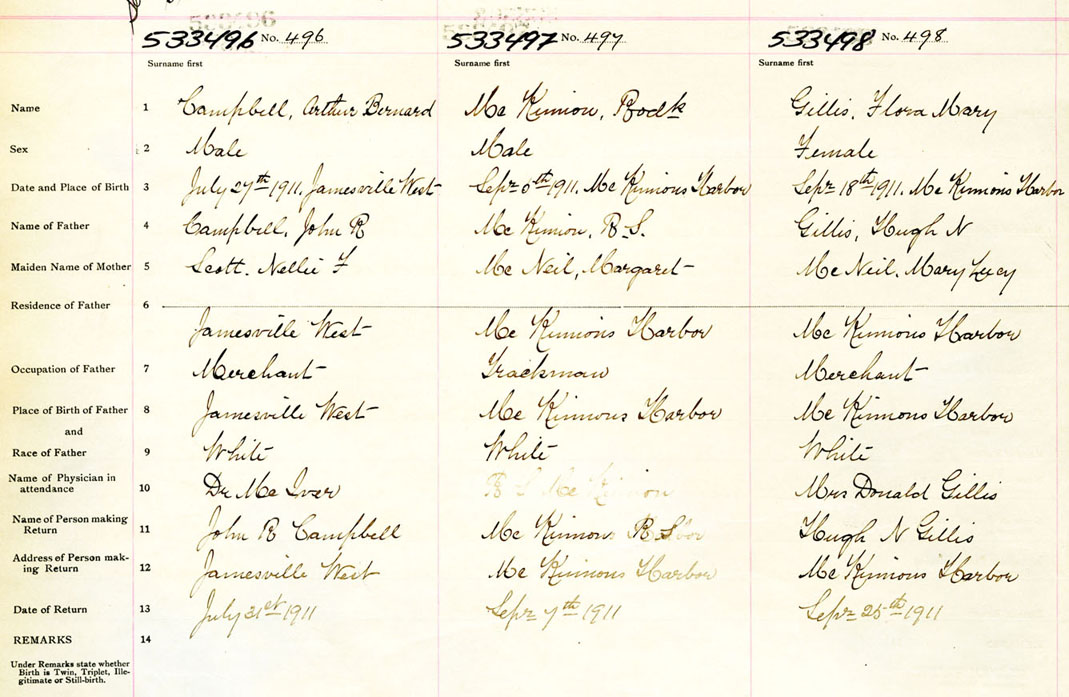 533496 No. 496 533497 No. 497 533498 No. 498
Surname first Surname first Surname first
Name 1 Campbell, Arthur Bernard Mc Kinnon, Rodk Gillis, Flora Mary
Sex 2 Male Male Female
Date and Place of Birth 3 July 27th 1911. Jamesville West Sepr 6th 1911. Mc Kinnons Harbor Sepr 18th 1911. Mc Kinnons Harbor
Name of Father 4 Campbell, John R Mc Kinnon, R. S. Gillis, Hugh N
Maiden Name of Mother 5 Scott. Nellie F Mc Neil, Margaret Mc Neil. Mary Lucy
Residence of Father 6
Jamesville West Mc Kinnons Harbor Mc Kinnons Harbor
Occupation of Father 7 Merchant Trackman Merchant
Place of Birth of Father 8 Jamesville West Mc Kinnons Harbor Mc Kinnons Harbor
and
Race of Father 9 White White White
Name of Physician in
attendance 10 Dr Mc Iver R S Mc Kinnon Mrs Donald Gillis
Name of Person making
Return 11 John R Campbell Mc Kinnon R S Hugh N Gillis
Address of Person mak-
ing Return 12 Jamesville West Mc Kinnons Harbor Mc Kinnons Harbor
Date of Return 13 July 31st 1911 Sepr 7th 1911 Sepr 25th 1911
REMARKS 14
Under Remarks state whether
Birth is Twin, Triplet, Ille-
gitimate or Still-birth.